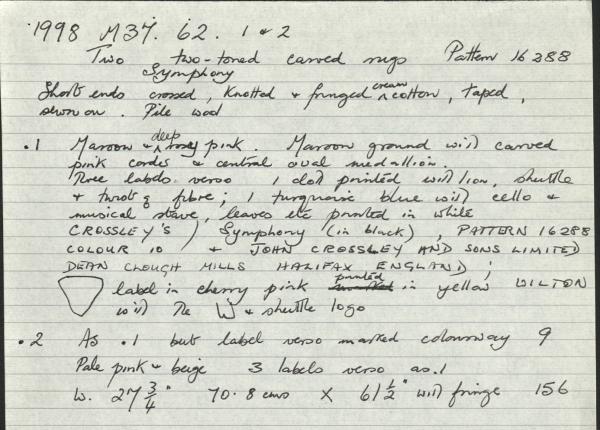 1998 M37. 62. 1 & 2
Two two-toned carved rugs Pattern 16288
Symphony
Short ends crossed, knotted & fringed cream cotton, taped,
sewn on. Pile wool
.1 Maroon & deep rosey pink. Maroon ground with carved
pink cordes & central oval medallion.
Three labels verso 1 cloth printed with lion, shuttle
& twist of fibre; 1 turquoise blue with cello &
musical stave, leaves etc printed in white
CROSSLEY'S) Symphony (in black), PATTERN 16288
COLOUR 10 & JOHN CROSSLEY AND SONS LIMITED
DEAN CLOUGH MILLS HALIFAX ENGLAND;
label in cherry pink printed in yellow WILTON
with the W & shuttle logo
.2 As .1 but label verso marked colourway 9
Pale pink & beige 3 labels verso as .1
W. 27 3/4" 70.8 cms X 61 1/2" with fringe 156